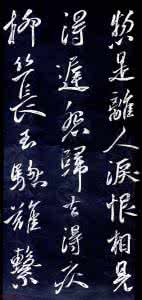 總是離人淚恨相見
得遲怨歸去得疾
柳絲長玉驄難繫